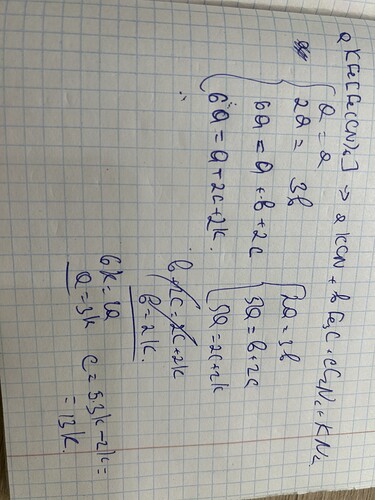 a KFe[Fe(CN)₆] → a KCN + b Fe₃C + c C₂N₂ + k N₂
a = a
2a = 3b
6a = a + b + 2c
6a = a + 2c + 2k
2a = 3b
5a = b + 2c
5a = 2c + 2k
b + 2c = 2c + 2k
b = 2k
6k = 2a
a = 3k
c = 5·3k - 2k =
= 13k.